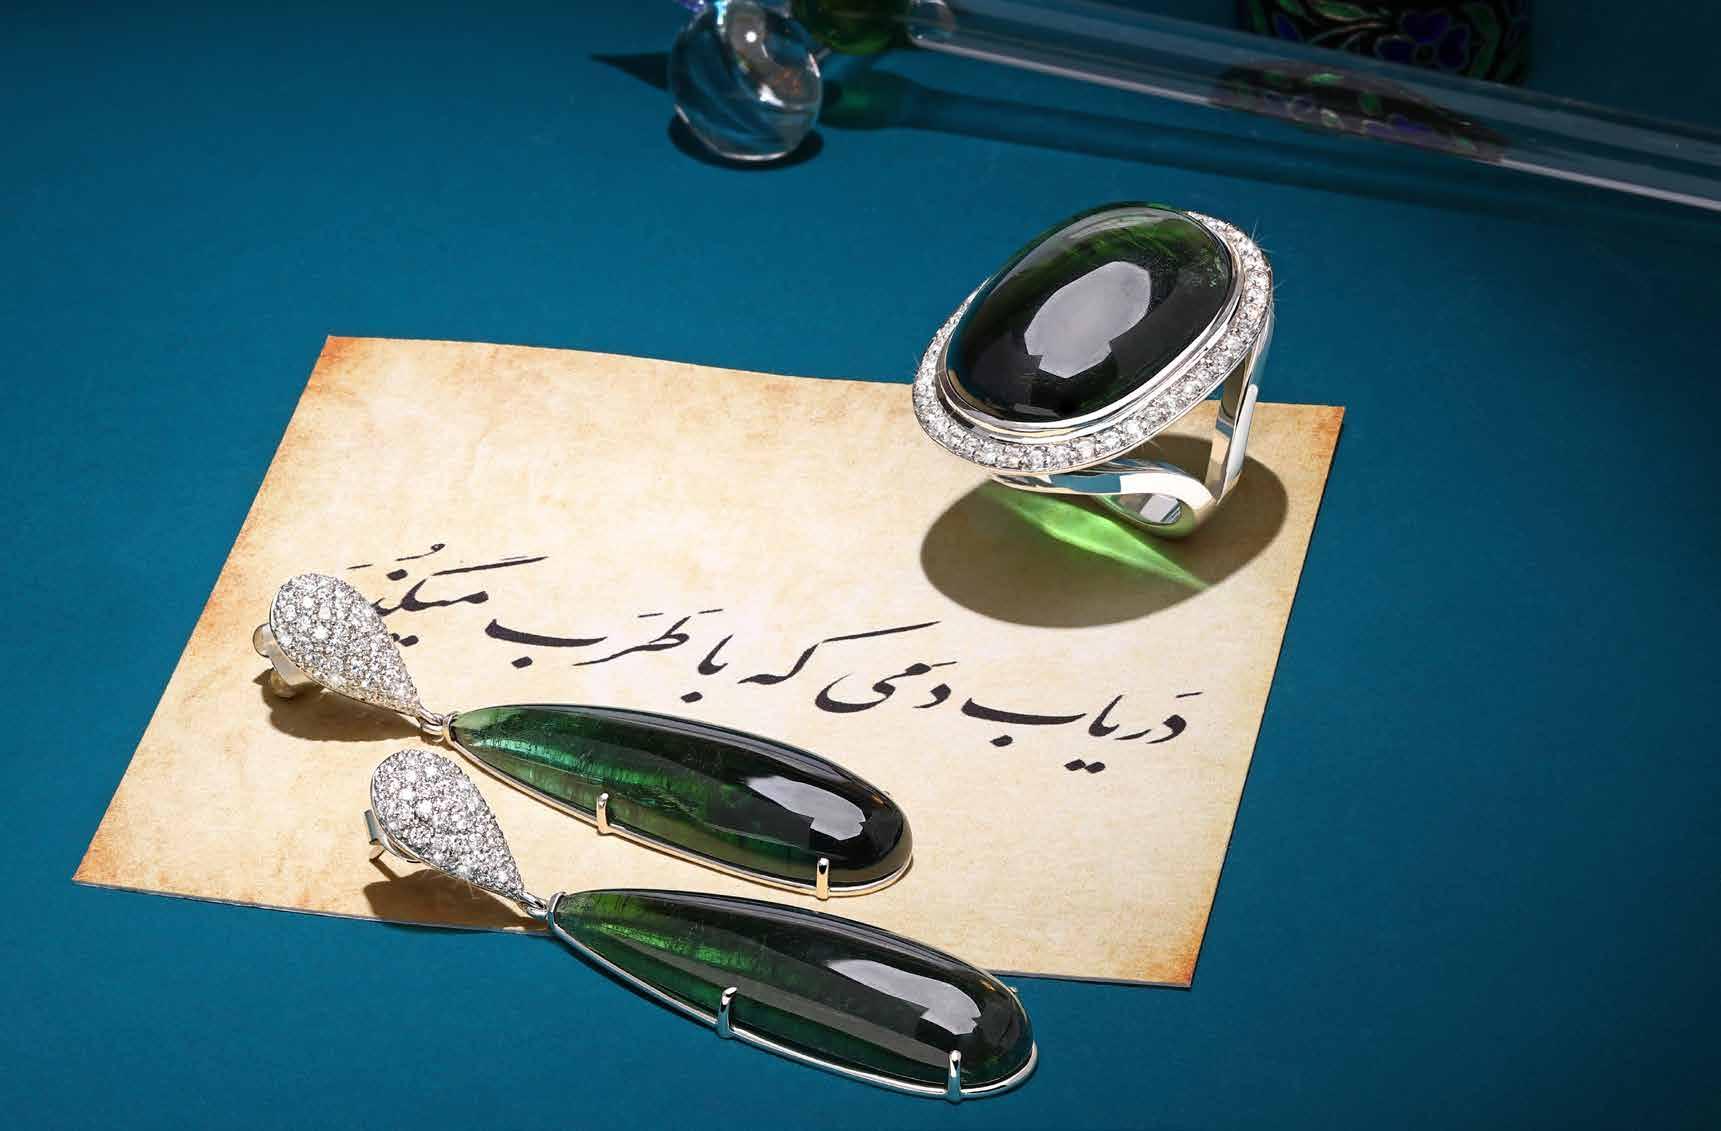 دَریاب دَمی که با طَرَب میگُذَ